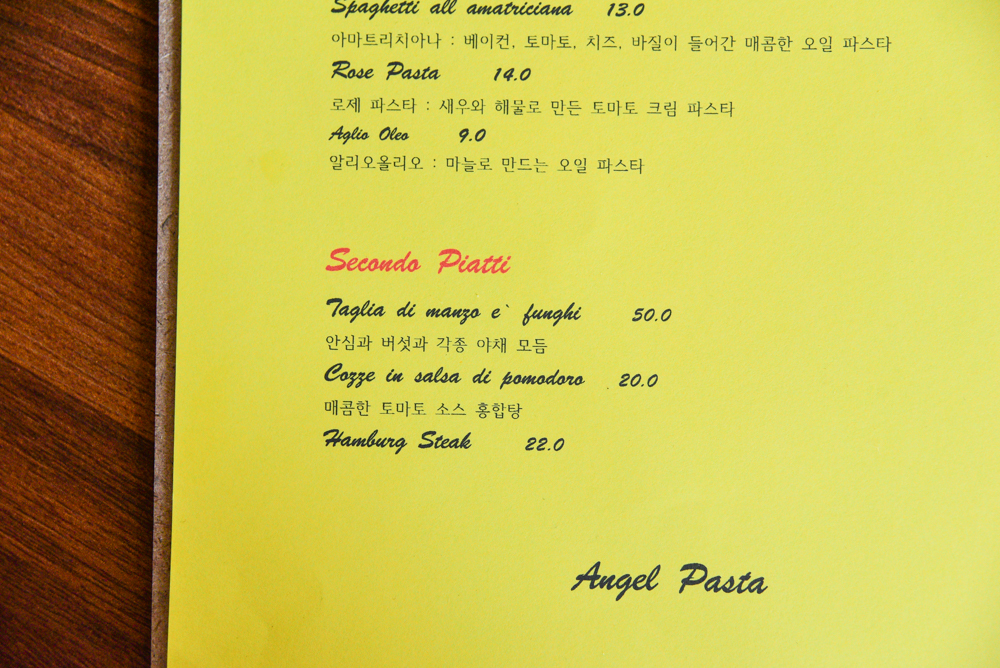 Spaghetti all amatriciana 13.0
아마트리치아나 : 베이컨, 토마토, 치즈, 바질이 들어간 매콤한 오일 파스타
Rose Pasta 14.0
로제 파스타 : 새우와 해물로 만든 토마토 크림 파스타
Aglio Oleo 9.0
알리오올리오 : 마늘로 만드는 오일 파스타
Secondo Piatti
Taglia di manzo e` funghi 50.0
안심과 버섯과 각종 야채 모듬
Cozze in salsa di pomodoro 20.0
매콤한 토마토 소스 홍합탕
Hamburg Steak 22.0
Angel Pasta